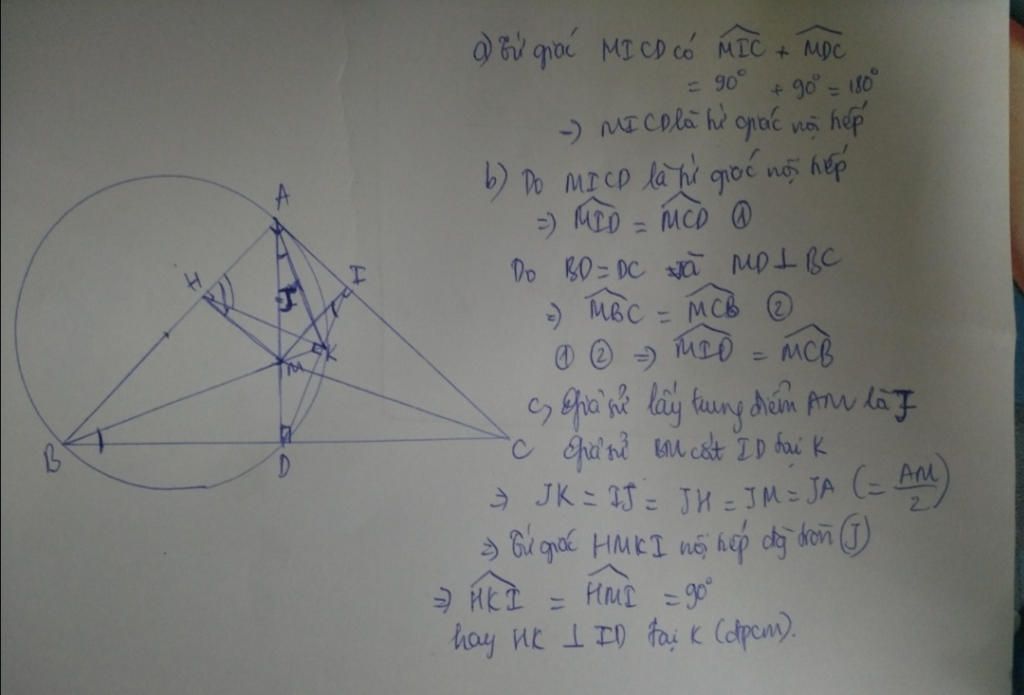 A
H
I
J
K
M
B
D
C
a) Tứ giác MICD có MIC + MDC
= 90° + 90° = 180°
=) MICD là tứ giác nội tiếp
b) Do MICD là tứ giác nội tiếp
=) MID = MCD ①
Do BD = DC và MD ⊥ BC
=) MBC = MCB ②
① ② =) MID = MCB
c, Giả sử lấy trung điểm AM là J
Giả sử BM cắt ID tại K
=) JK = IJ = JH = JM = JA (= AM/2)
=) Tứ giác HMKI nội tiếp đg tròn (J)
=) HKI = HMI = 90°
hay HK ⊥ ID tại K (đpcm).